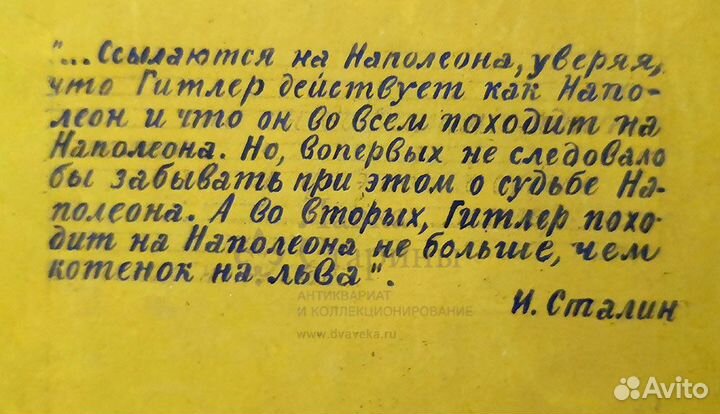 "...Ссылаются на Наполеона, уверяя,
что Гитлер действует как Напо-
леон и что он во всем походит на
Наполеона. Но, вопервых не следовало
бы забывать при этом о судьбе На-
полеона. А во вторых, Гитлер похо-
дит на Наполеона не больше, чем
котенок на льва".
И. Сталин
АНТИКВАРИАТ
И КОЛЛЕКЦИОНИРОВАНИЕ
www.dvaveka.ru
Avito